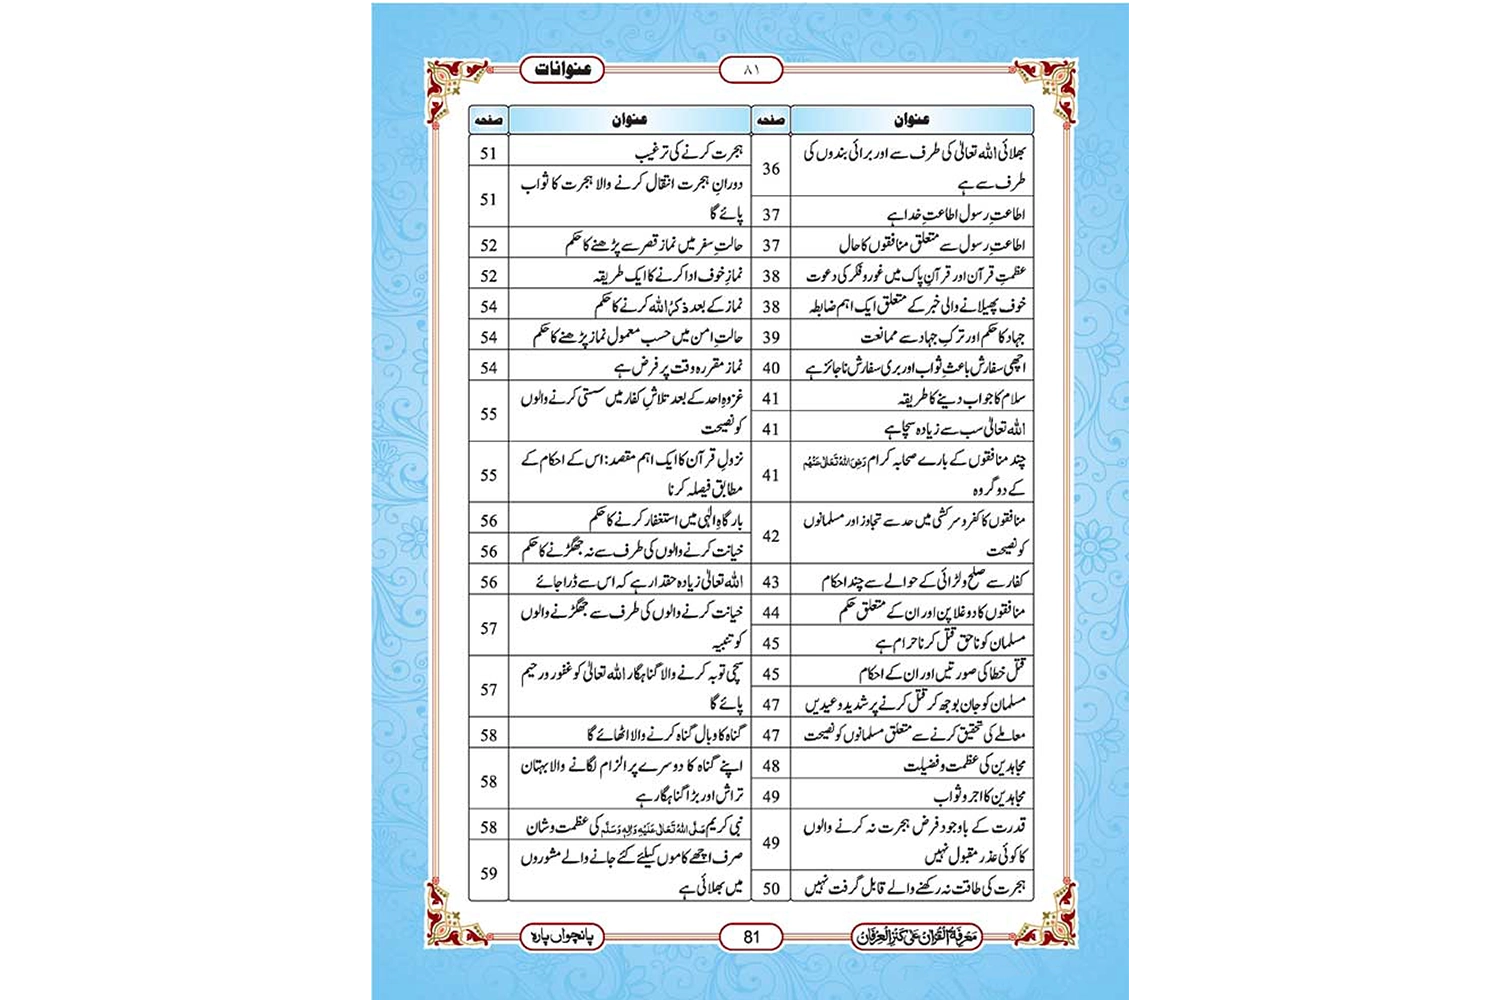 عنوانات
۸۱
عنوان صفحہ
بھلائی اللہ تعالیٰ کی طرف سے اور برائی بندوں کی
طرف سے ہے 36
اطاعتِ رسول اطاعتِ خدا ہے 37
اطاعتِ رسول سے متعلق منافقوں کا حال 37
عظمتِ قرآن اور قرآنِ پاک میں غور و فکر کی دعوت 38
خوف پھیلانے والی خبر کے متعلق ایک اہم ضابطہ 38
جہاد کا حکم اور ترکِ جہاد سے ممانعت 39
اچھی سفارش باعثِ ثواب اور بری سفارش ناجائز ہے 40
سلام کا جواب دینے کا طریقہ 41
اللہ تعالیٰ سب سے زیادہ سچا ہے 41
چند منافقوں کے بارے صحابہ کرام رَضِیَ اللہُ تَعَالٰی عَنْہُم
کے دو گروہ 41
منافقوں کا کفر و سرکشی میں حد سے تجاوز اور مسلمانوں
کو نصیحت 42
کفار سے صلح و لڑائی کے حوالے سے چند احکام 43
منافقوں کا دوغلا پن اور ان کے متعلق حکم 44
مسلمان کو ناحق قتل کرنا حرام ہے 45
قتل خطا کی صورتیں اور ان کے احکام 45
مسلمان کو جان بوجھ کر قتل کرنے پر شدید وعیدیں 47
معاملے کی تحقیق کرنے سے متعلق مسلمانوں کو نصیحت 47
مجاہدین کی عظمت و فضیلت 48
مجاہدین کا اجر و ثواب 49
قدرت کے باوجود فرض ہجرت نہ کرنے والوں
کا کوئی عذر مقبول نہیں 49
ہجرت کی طاقت نہ رکھنے والے قابل گرفت نہیں 50
عنوان صفحہ
ہجرت کرنے کی ترغیب 51
دورانِ ہجرت انتقال کرنے والا ہجرت کا ثواب
پائے گا 51
حالتِ سفر میں نماز قصر سے پڑھنے کا حکم 52
نمازِ خوف ادا کرنے کا ایک طریقہ 52
نماز کے بعد ذکرُ اللہ کرنے کا حکم 54
حالتِ امن میں حسب معمول نماز پڑھنے کا حکم 54
نماز مقررہ وقت پر فرض ہے 54
غزوہِ احد کے بعد تلاشِ کفار میں سستی کرنے والوں
کو نصیحت 55
نزولِ قرآن کا ایک اہم مقصد: اس کے احکام کے
مطابق فیصلہ کرنا 55
بارگاہِ الٰہی میں استغفار کرنے کا حکم 56
خیانت کرنے والوں کی طرف سے نہ جھگڑنے کا حکم 56
اللہ تعالیٰ زیادہ حقدار ہے کہ اس سے ڈرا جائے 56
خیانت کرنے والوں کی طرف سے جھگڑنے والوں
کو تنبیہ 57
سچی توبہ کرنے والا گناہگار اللہ تعالیٰ کو غفور و رحیم
پائے گا 57
گناہ کا وبال گناہ کرنے والا اٹھائے گا 58
اپنے گناہ کا دوسرے پر الزام لگانے والا بہتان
تراش اور بڑا گناہگار ہے 58
نبی کریم صَلَّی اللہُ تَعَالٰی عَلَیْہِ وَاٰلِہٖ وَسَلَّم کی عظمت و شان 58
صرف اچھے کاموں کیلئے کئے جانے والے مشوروں
میں بھلائی ہے 59
مَعْرِفَۃُ الْقُرْاٰن عَلٰی کَنْزِ الْعِرْفَان
81
پانچواں پارہ